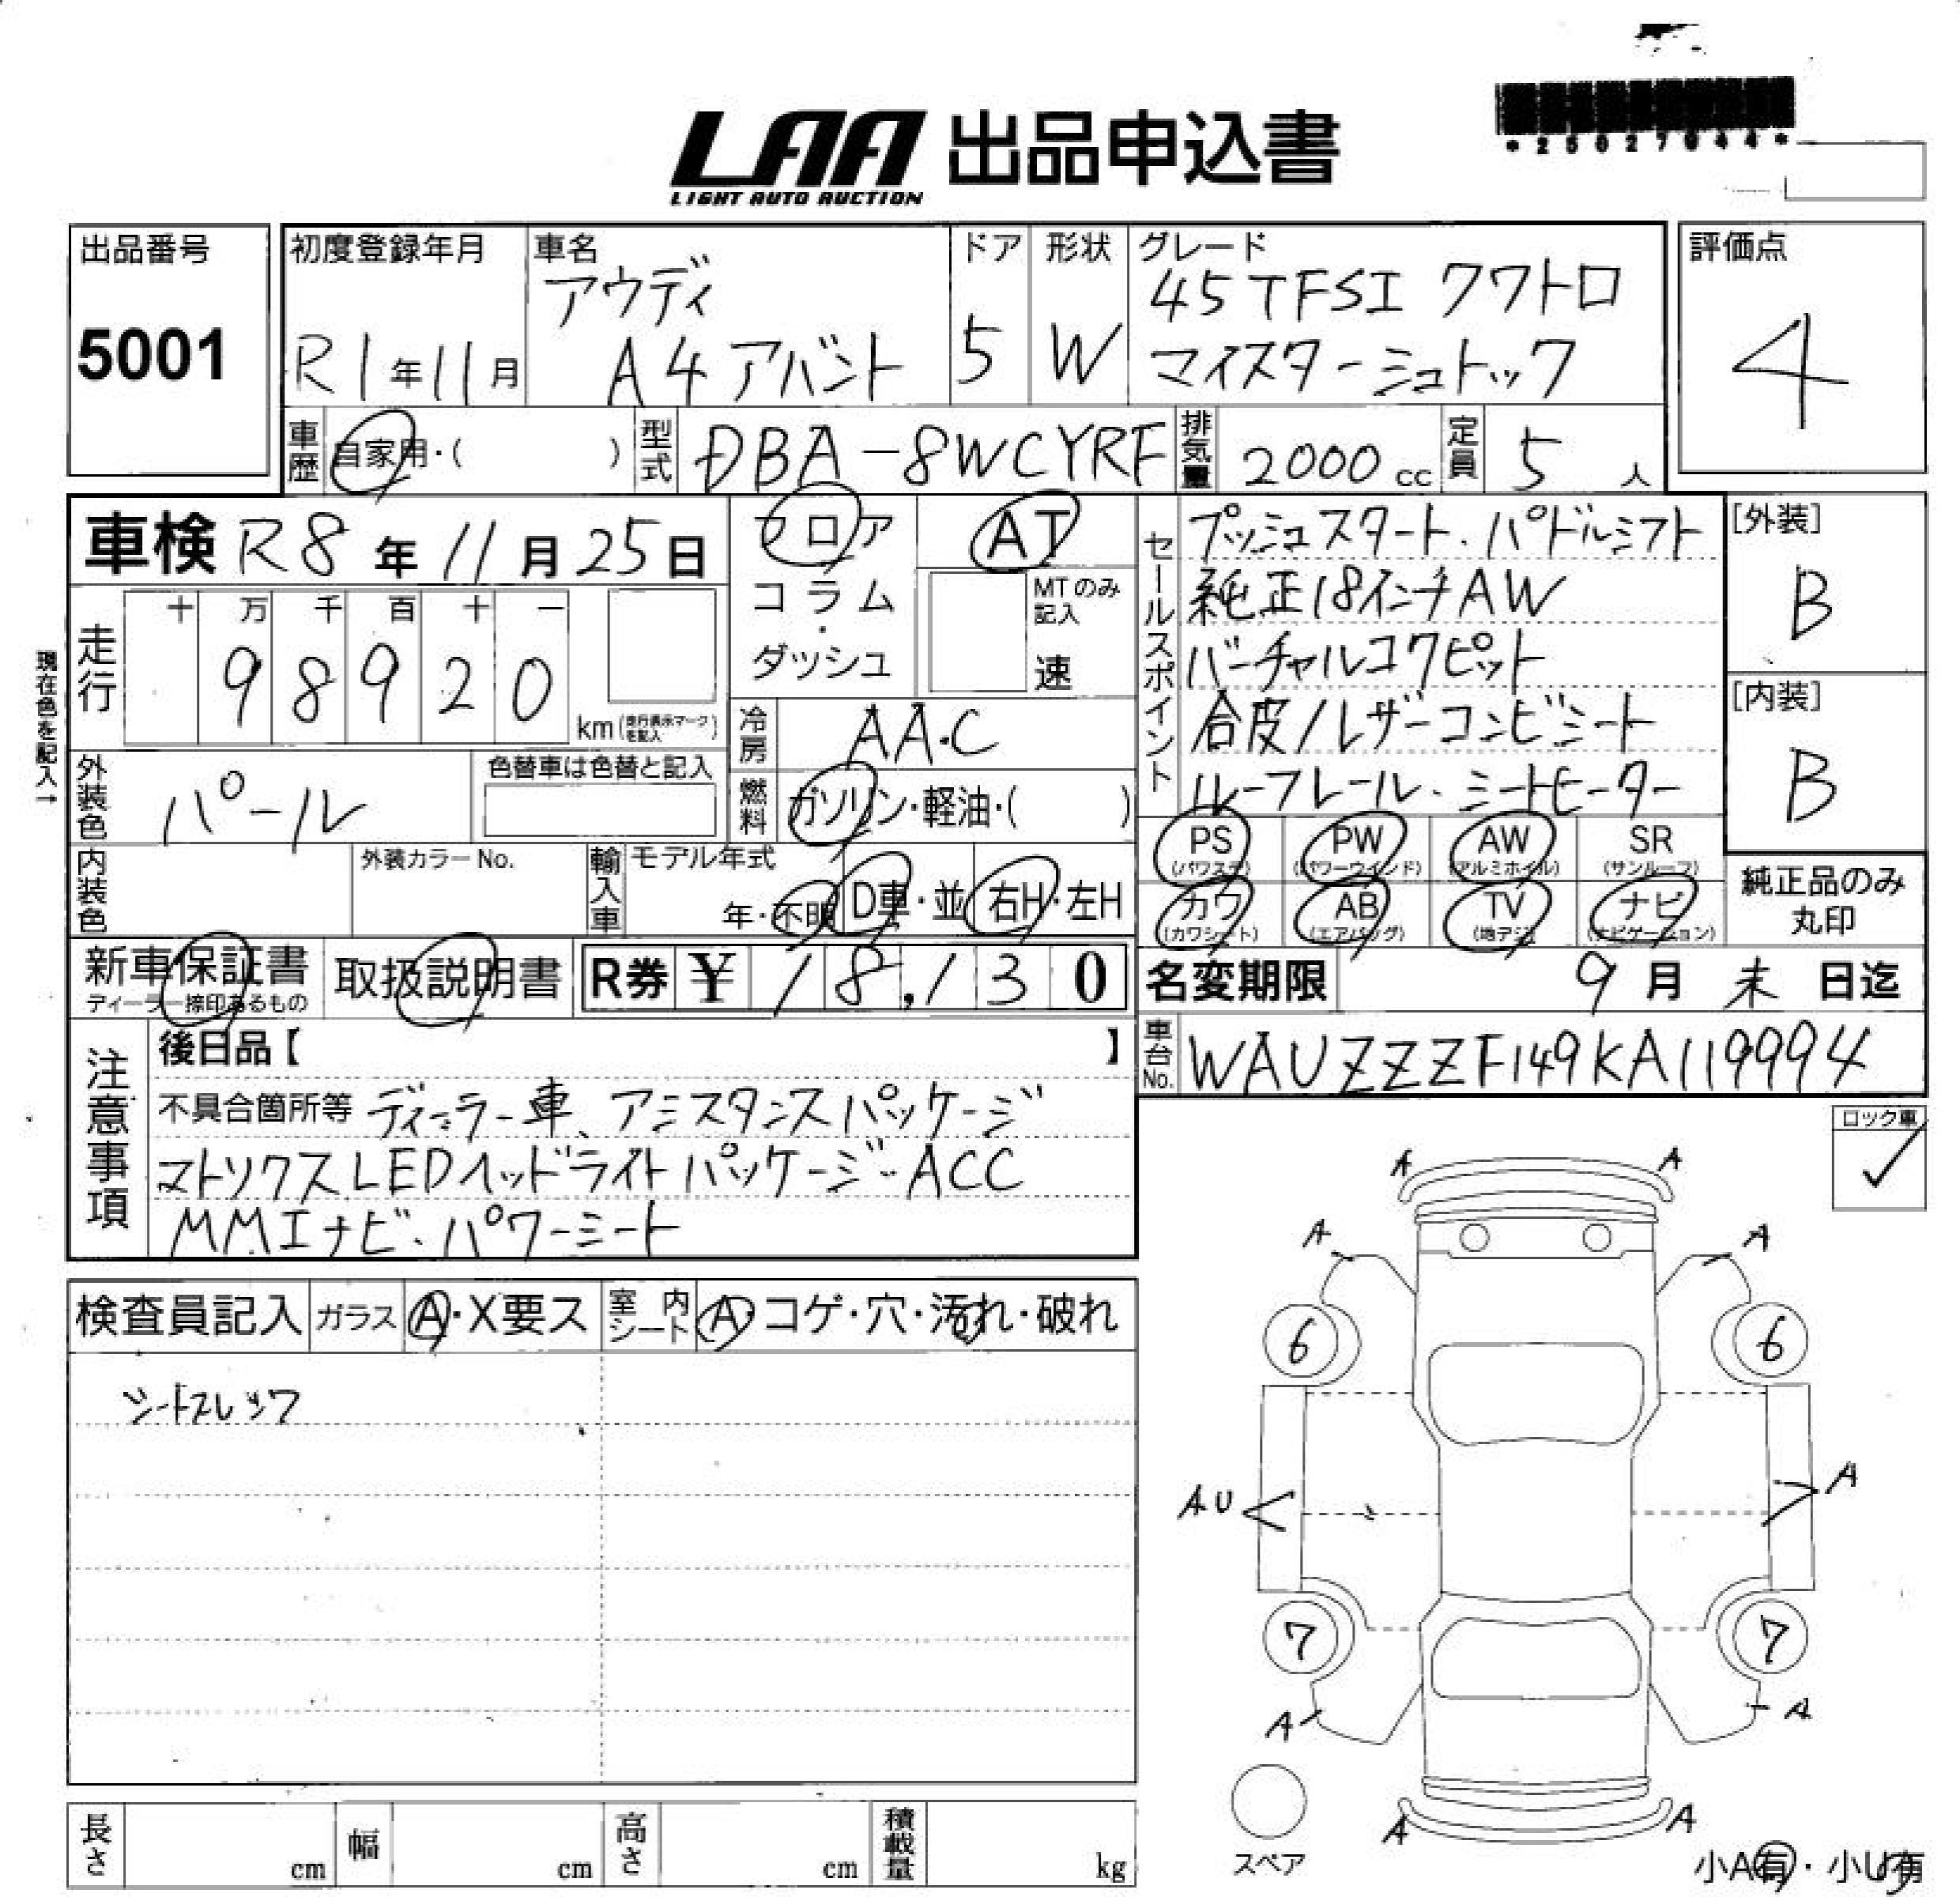 *25027044*
LAA 出品申込書
LIGHT AUTO AUCTION
出品番号
5001
初度登録年月
R1年11月
車名
アウディ
A4アバント
ドア
5
形状
W
グレード
45TFSI クワトロ
マイスターシュトゥック
評価点
4
車歴 自家用・( )
型式 DBA-8WCYRF
排気量 2000cc
定員 5人
車検 R8年11月25日
フロア
コラム・ダッシュ
AT
MTのみ記入
速
セールスポイント
プッシュスタート.パドルシフト
純正18インチAW
バーチャルコクピット
合皮/レザーコンビシート
ルーフレール.シートヒーター
[外装]
B
[内装]
B
現在色を記入→
走行
十 万 千 百 十 一
98920
km(走行表示マークを記入)
冷房 AA.C
燃料 ガソリン・軽油・( )
外装色 パール
色替車は色替と記入
内装色
外装カラーNo.
輸入車 モデル年式
年・不明 D車・並 右H・左H
PS (パワステ)
PW (パワーウインド)
AW (アルミホイル)
SR (サンルーフ)
カワ (カワシート)
AB (エアバッグ)
TV (地デジ)
ナビ (ナビゲーション)
純正品のみ
丸印
新車保証書
ディーラー捺印あるもの
取扱説明書
R券 ¥18,130
名変期限 9月末日迄
車台No. WAUZZZF149KA119994
注意事項
後日品【 】
不具合箇所等 ディーラー車、アシスタンスパッケージ
マトリクスLEDヘッドライトパッケージ.ACC
MMIナビ.パワーシート
ロック車
✓
検査員記入
ガラス A・X要ス
室内シート A・コゲ・穴・汚れ・破れ
シートスレ シワ
A A
A A
6 6
AU A
7 7
A A
A A
スペア
小A有・小U有
長さ cm
幅 cm
高さ cm
積載量 kg